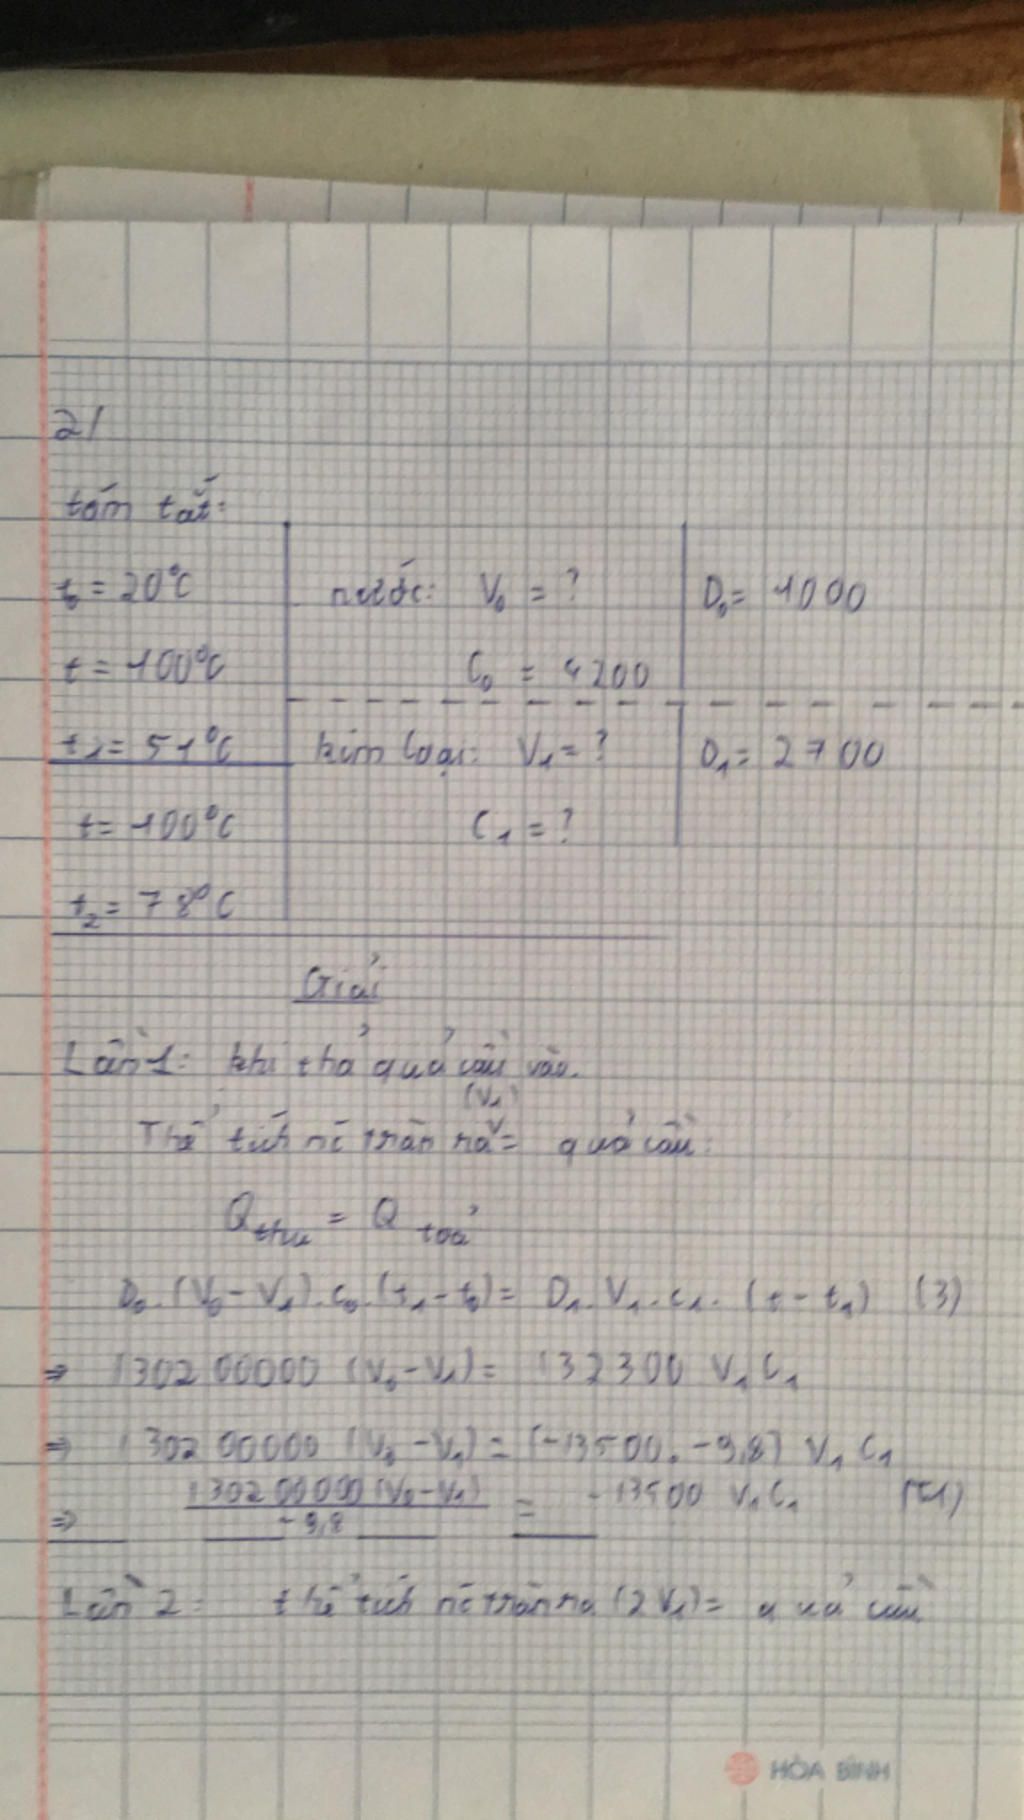 2/
tóm tắt:
t₀ = 20°C
nước: V₀ = ?
D₀ = 1000
t = 100°C
C₀ = 4200
t₁ = 51°C
kim loại: V₁ = ?
D₁ = 2700
t = 100°C
C₁ = ?
t₂ = 78°C
Giải
Lần 1: khi thả quả cầu vào.
(V₁)
Thể tích nc tràn ra = quả cầu.
Q thu = Q toả
D₀.(V₀ - V₁).c₀.(t₁ - t₀) = D₁.V₁.c₁.(t - t₁) (3)
⇒ 130200000 (V₀ - V₁) = 132300 V₁C₁
⇒ 130200000 (V₀ - V₁) = (-13500. -9,8) V₁C₁
⇒ 130200000 (V₀ - V₁) / -9,8 = -13500 V₁C₁
Lần 2: thể tích nc tràn ra (2V₁) = quả cầu
HÒA BÌNH